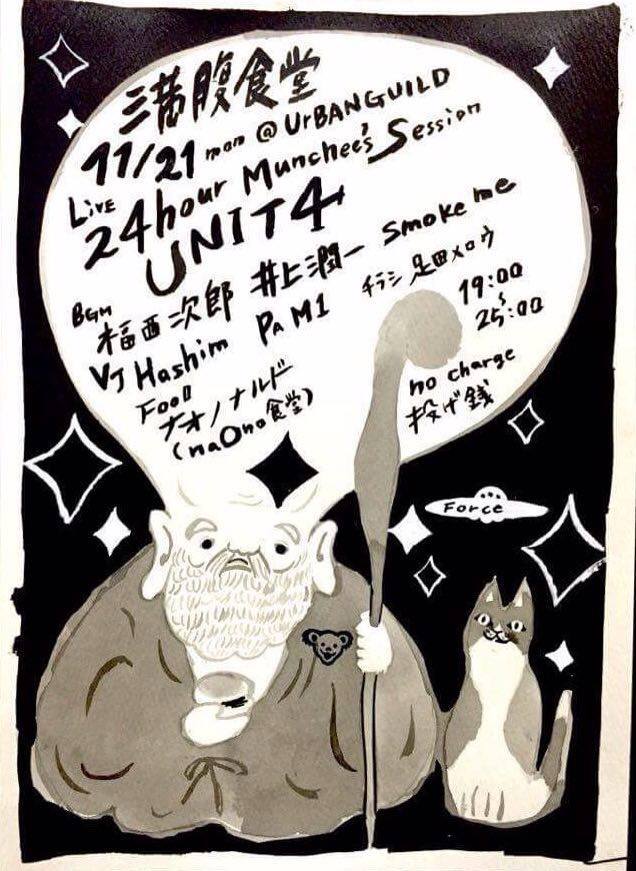 三満腹食堂
11/21 mon @ UrBANGUILD
LiVE 24hour Munchee's Session
UNIT4
BGM 福西次郎 井上潤一 Smoke me
VJ Hashim PaM1 チラシ 足田メロウ
FOOD ナオノナルド
(naOno食堂)
19:00
〜
25:00
no charge
投げ銭
Force